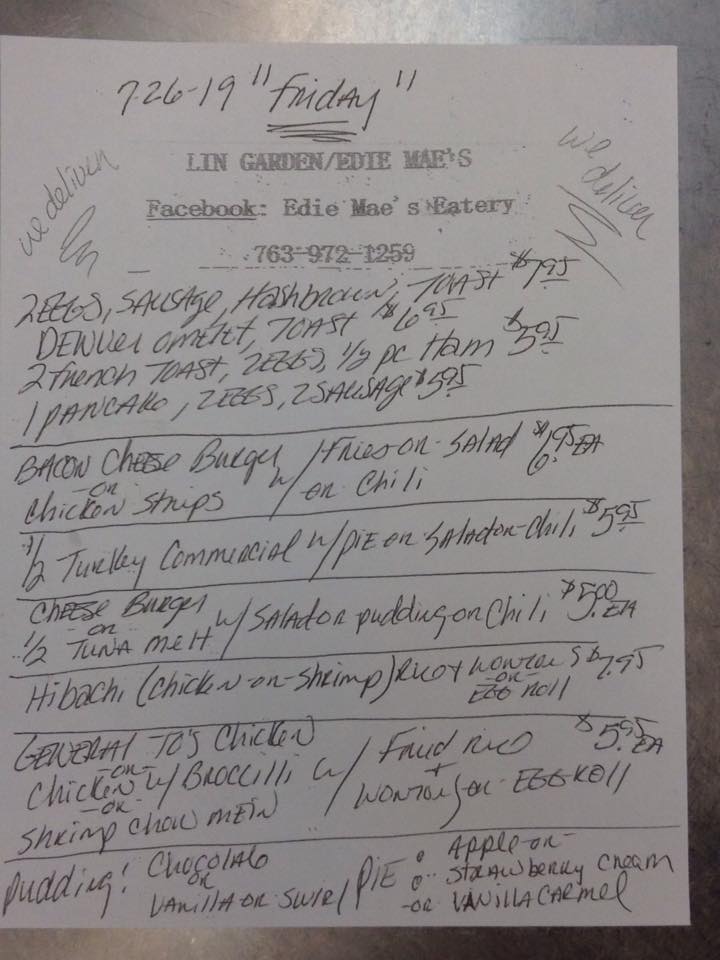 7-26-19 "Friday"
LIN GARDEN/EDIE MAE'S
we deliver
we deliver
Facebook: Edie Mae's Eatery
763-972-1259
2 EGGS, SAUSAGE, Hashbrown, TOAST $7.95
DENVER omelet, TOAST $6.95
2 french TOAST, 2 EGGS, 1/2 pc Ham $5.95
1 PANCAKe, 2 EGGS, 2 SAUSAGE $5.95
BACON Cheese Burger w/ Fries or SALAD $6.95 EA
-or-
Chicken Strips or Chili
1/2 Turkey Commercial w/ pie or SALAD or Chili $5.95
Cheese Burger
-or-
1/2 TUNA melt w/ SALAD or pudding or Chili $5.00 EA
Hibachi (chicken-or-shrimp) Rice + wontons $7.95
-or-
EGG Roll
GENERAL TO'S Chicken $5.95 EA
-or-
Chicken w/ Broccilli w/ Fried rice
-or- +
Shrimp Chow mein wontons or EGG Roll
Pudding! Chocolate
or
Vanilla or Swirl
PIE: Apple or
Strawberry Cream
or VANILLA CARmel